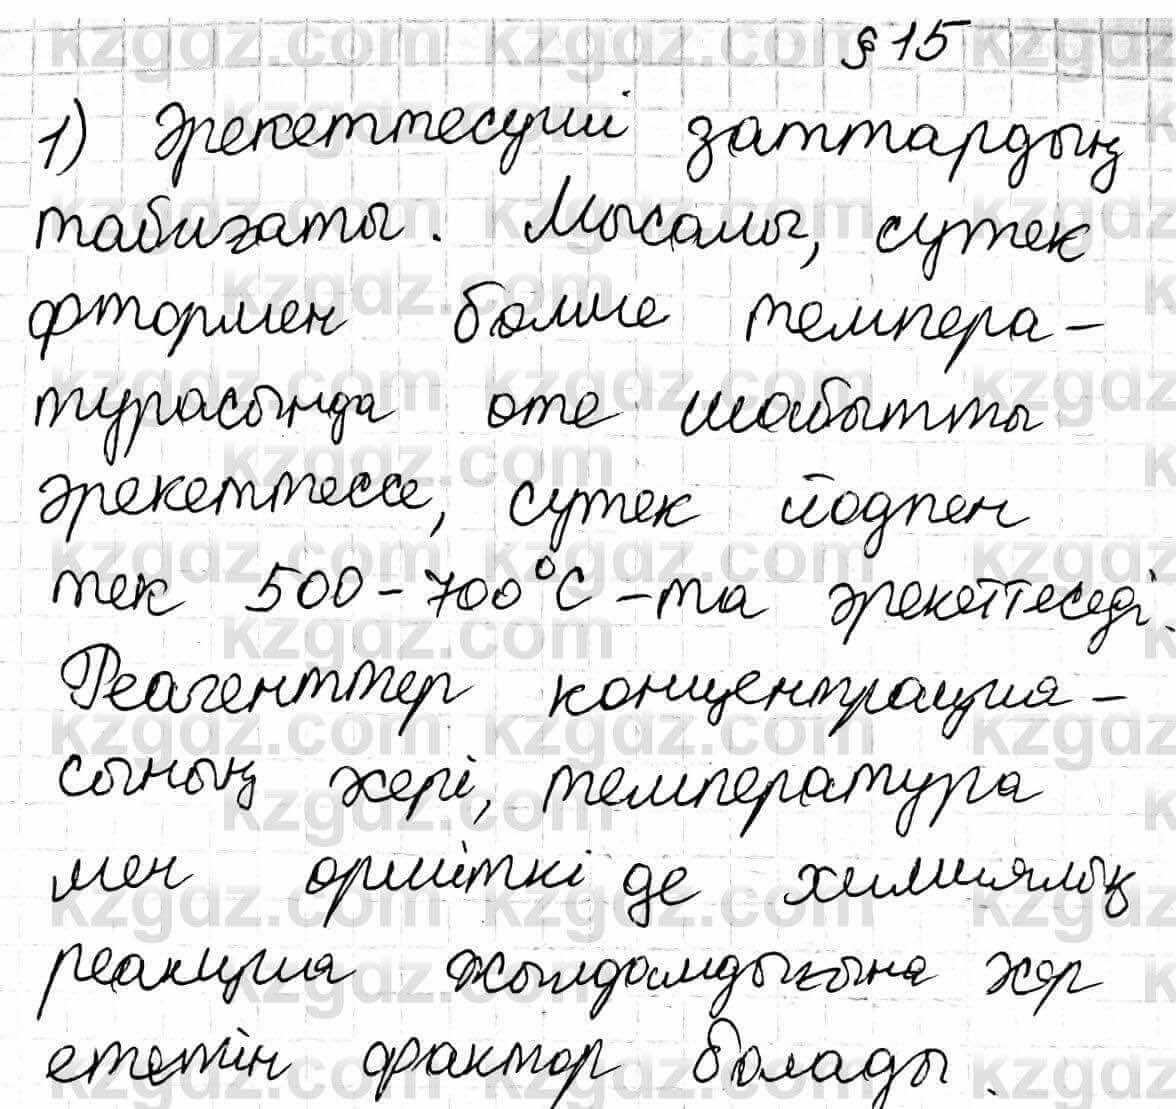 § 15
1) Әрекеттесуші заттардың
табиғаты. Мысалы, сутек
фтормен бөлме темпера-
турасында өте шабытты
әрекеттессе, сутек йодпен
тек 500-700°С-та әрекеттеседі.
Реагенттер концентрация-
сының жері, температура
мен өршіткі де химиялық
реакция жылдамдығына жер
ететін фактор болады.